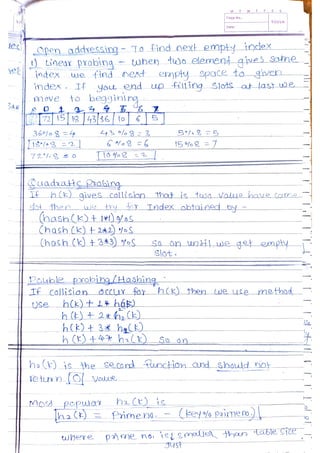 Open addressing - To find next empty index
1) Linear probing - when two element gives same
index we find next empty space to given
index. If you end up filling slots at last we
move to beggining
0 1 2 3 4 5 6 7
72 15 18 43 36 10 6 5
36%8 = 4 43%8 = 3 5%8 = 5
18%8 = 2 6%8 = 6 15%8 = 7
72%8 = 0 10%8 = 2
Quadratic Probing
If h(k) gives collision that is two value have same
slot then we try for Index obtained by -
(hash(k) + 1*1) % S
(hash(k) + 2*2) % S
(hash(k) + 3*3) % S so on until we get empty
slot.
Double probing/Hashing
If collision occur for h(k) then we use method
Use h(k) + 1 * h2(k)
h(k) + 2 * h2(k)
h(k) + 3 * h2(k)
h(k) + 4 * h2(k) so on
h2(k) is the second function and should not
return 0 value
Most popular h2(k) is
h2(k) = Prime no. - (key % prime no)
where prime no. is smaller than table size
just